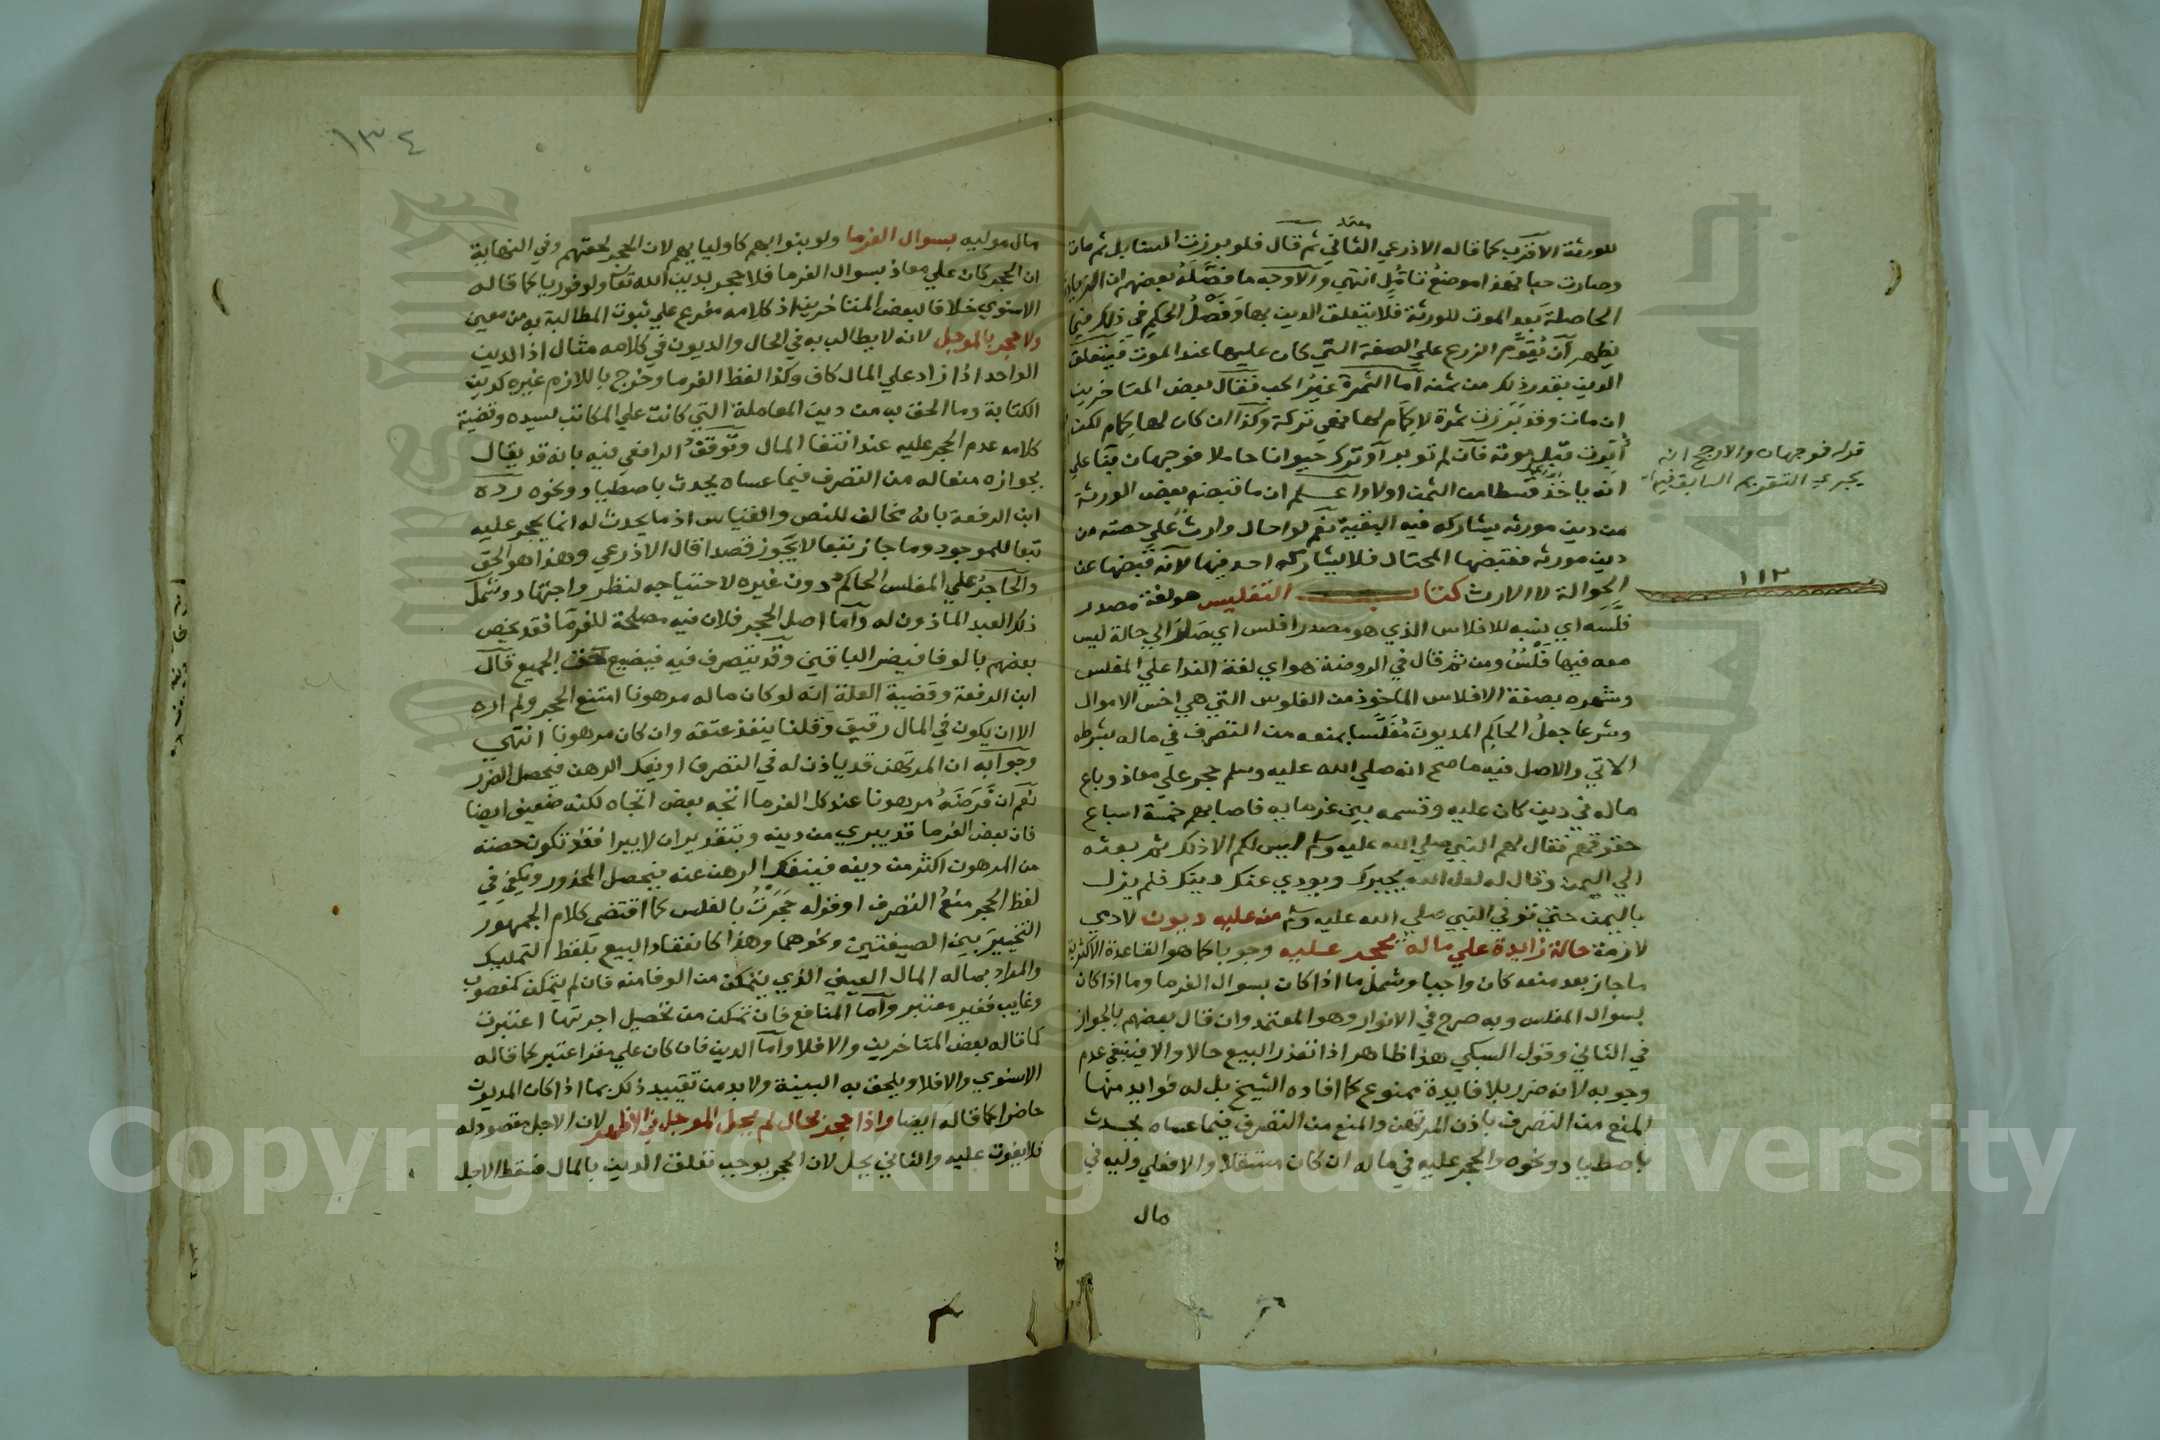 معتمد
للورثة الاقرب كما قاله الاذرعي الثاني ثم قال فلو برزت السنابل ثم مات
وصارت حبا فهذا موضع تأمل انتهي والاوجه ما فصله بعضهم ان الزيادة
الحاصلة بعد الموت للورثة فلا يتعلق الدين بها وفصل الحكم في ذلك فيما
يظهر ان يقوم الزرع علي الصفة التي كان عليها عند الموت فيتعلق
الدين بقدر ذلك من ثمنه اما الثمرة غير الحب فقال بعض المتاخرين
ان مات وقد برزت ثمرة لا كمام لها فهي تركة وكذا ان كان لها كمام لكن
أبرت قبل موته فان لم توبر او ترك حيوانا حاملا فوجهان بنا علي
انه ياخذ قسطا من الثمن اولا واعلم ان ما قبضه بعض الورثة
من دين مورثه يشاركه فيه البقية نعم لو احال وارث علي حصته من
دين مورثه فقبضها المحتال فلا يشاركه احد فيها لانه قبضها عن
الحوالة لا الارث كتاب التفليس هو لغة مصدر
فلسه اي نسبه للافلاس الذي هو مصدر افلس اي صار الي حالة ليس
معه فيها فلس ومن ثم قال في الروضة هو اي لغة الندا علي المفلس
وشهره بصفة الافلاس الماخوذ من الفلوس التي هي اخس الاموال
وشرعا جعل الحاكم المديون مفلسا بمنعه من التصرف في ماله بشرطه
الاتي والاصل فيه ما صح انه صلي الله عليه وسلم حجر علي معاذ وباع
ماله في دين كان عليه وقسمه بين غرمايه فاصابهم خمسة اسباع
حقوقهم فقال لهم النبي صلي الله عليه وسلم ليس لكم الا ذلك ثم بعثه
الي اليمن وقال له لعل الله يجبرك ويودي عنك دينك فلم يزل
باليمن حتي توفي النبي صلي الله عليه وسلم من عليه ديون لادمي
لازمة حالة زايدة علي ماله يحجر عليه وجوبا كما هو القاعدة الاكثرية
ما جاز بعد منعه كان واجبا وشمل ما اذا كان بسوال الغرما وما اذا كان
بسوال المفلس وبه صرح في الانوار وهو المعتمد وان قال بعضهم بالجواز
في الثاني وقول السبكي هذا ظاهر اذا تعذر البيع حالا والا فينبغي عدم
وجوبه لانه ضرر بلا فايدة ممنوع كما افاده الشيخ بل له فوايد منها
المنع من التصرف باذن المرتهن والمنع من التصرف فيما عساه يحدث
باصطياد ونحوه والحجر عليه في ماله ان كان مستقلا والا فعلي وليه في
مال
قوله فوجهان والارجح انه
يجري التقويم السابق فيها
١١٢
١٣٤
مال موليه بسوال الغرما ولو بنوابهم كاوليايهم لان الحجر لحقهم وفي النهاية
ان الحجر كان علي معاذ بسوال الغرما فلا حجر بدين الله تعا ولو فوريا كما قاله
الاسنوي خلافا لبعض المتاخرين اذ كلامه مفرع علي ثبوت المطالبة به من معين
ولا حجر بالموجل لانه لا يطالب به في الحال والديون في كلامه مثال اذ الدين
الواحد اذا زاد علي المال كاف وكذا لفظ الغرما وخرج باللازم غيره كدين
الكتابة وما الحق به من دين المعاملة التي كانت علي المكاتب لسيده وقضية
كلامه عدم الحجر عليه عند انتفا المال وتوقف الرافعي فيه بانه قد يقال
بجوازه منعا له من التصرف فيما عساه يحدث باصطياد ونحوه رده
ابن الرفعة بانه مخالف للنص والقياس اذ ما يحدث له انما يحجر عليه
تبعا للموجود وما جاز تبعا لا يجوز قصدا قال الاذرعي وهذا هو الحق
والحاجر علي المفلس الحاكم دون غيره لاحتياجه لنظر واجتهاد وشمل
ذلك العبد الماذون له واما اصل الحجر فلان فيه مصلحة للغرما فقد يخص
بعضهم بالوفا فيضر الباقين وقد يتصرف فيه فيضيع حق الجميع قال
ابن الرفعة وقضية العلة انه لو كان ماله مرهونا امتنع الحجر ولم اره
الا ان يكون في المال رقيق وقلنا ينفذ عتقه وان كان مرهونا انتهي
وجوابه ان المرتهن قد ياذن له في التصرف او يفك الرهن فيحصل الضرر
نعم ان فرضه مرهونا عند كل الغرما اتجه بعض اتجاه لكنه ضعيف ايضا
فان بعض الغرما قد يبري من دينه وبتقدير ان لا يبرا فقد تكون حصته
من المرهون اكثر من دينه فينفك الرهن عنه فيحصل المحذور ويكفي في
لفظ الحجر منع التصرف او قوله حجرت بالفلس كما اقتضي كلام الجمهور
التخيير بين الصيغتين ونحوهما وهذا كانعقاد البيع بلفظ التمليك
والمراد بماله المال العيني الذي يتمكن من الوفا منه فان لم يتمكن كمغصوب
وغايب فغير معتبر واما المنافع فان تمكن من تحصيل اجرتها اعتبرت
كما قاله بعض المتاخرين والا فلا واما الدين فان كان علي مقر اعتبر كما قاله
الاسنوي والا فلا ويلحق به البينة ولا بد من تقييد ذلك بما اذا كان المديون
حاضرا كما قاله ايضا واذا حجر بحال لم يحل الموجل في الاظهر لان الاجل مقصود له
فلا يفوت عليه والثاني يحل لان الحجر يوجب تعلق الدين بالمال فسقط الاجل
Copyright © King Saud University